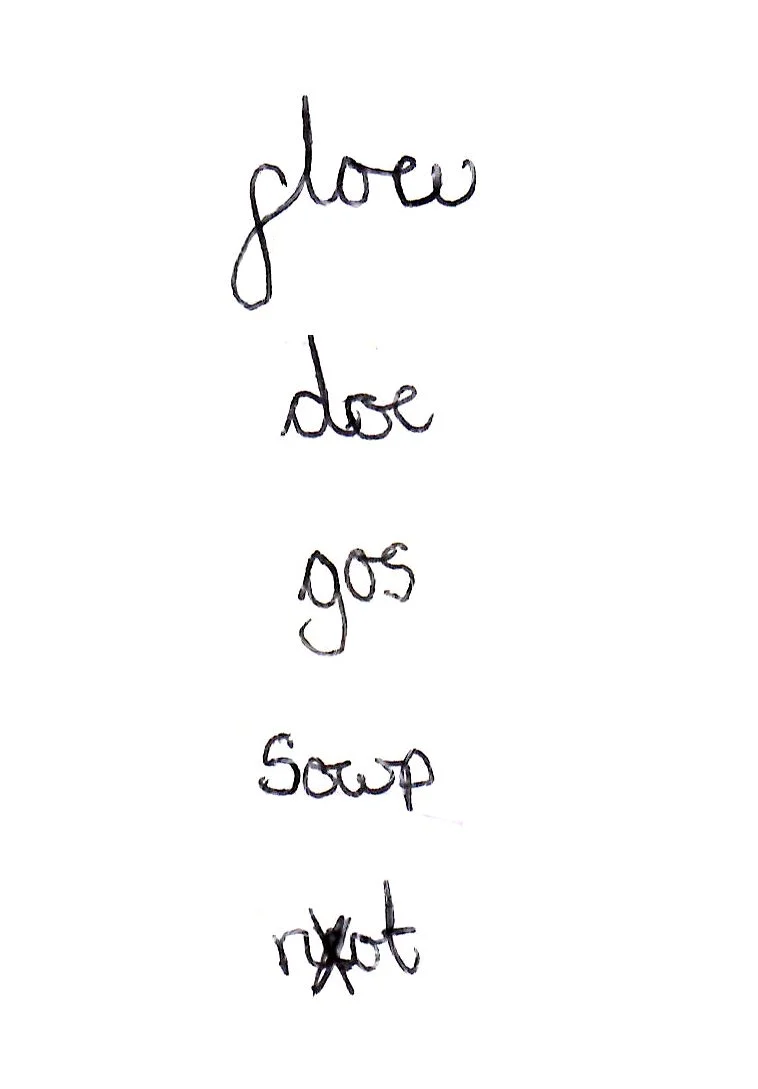 gloew
doe
gos
sowp
not